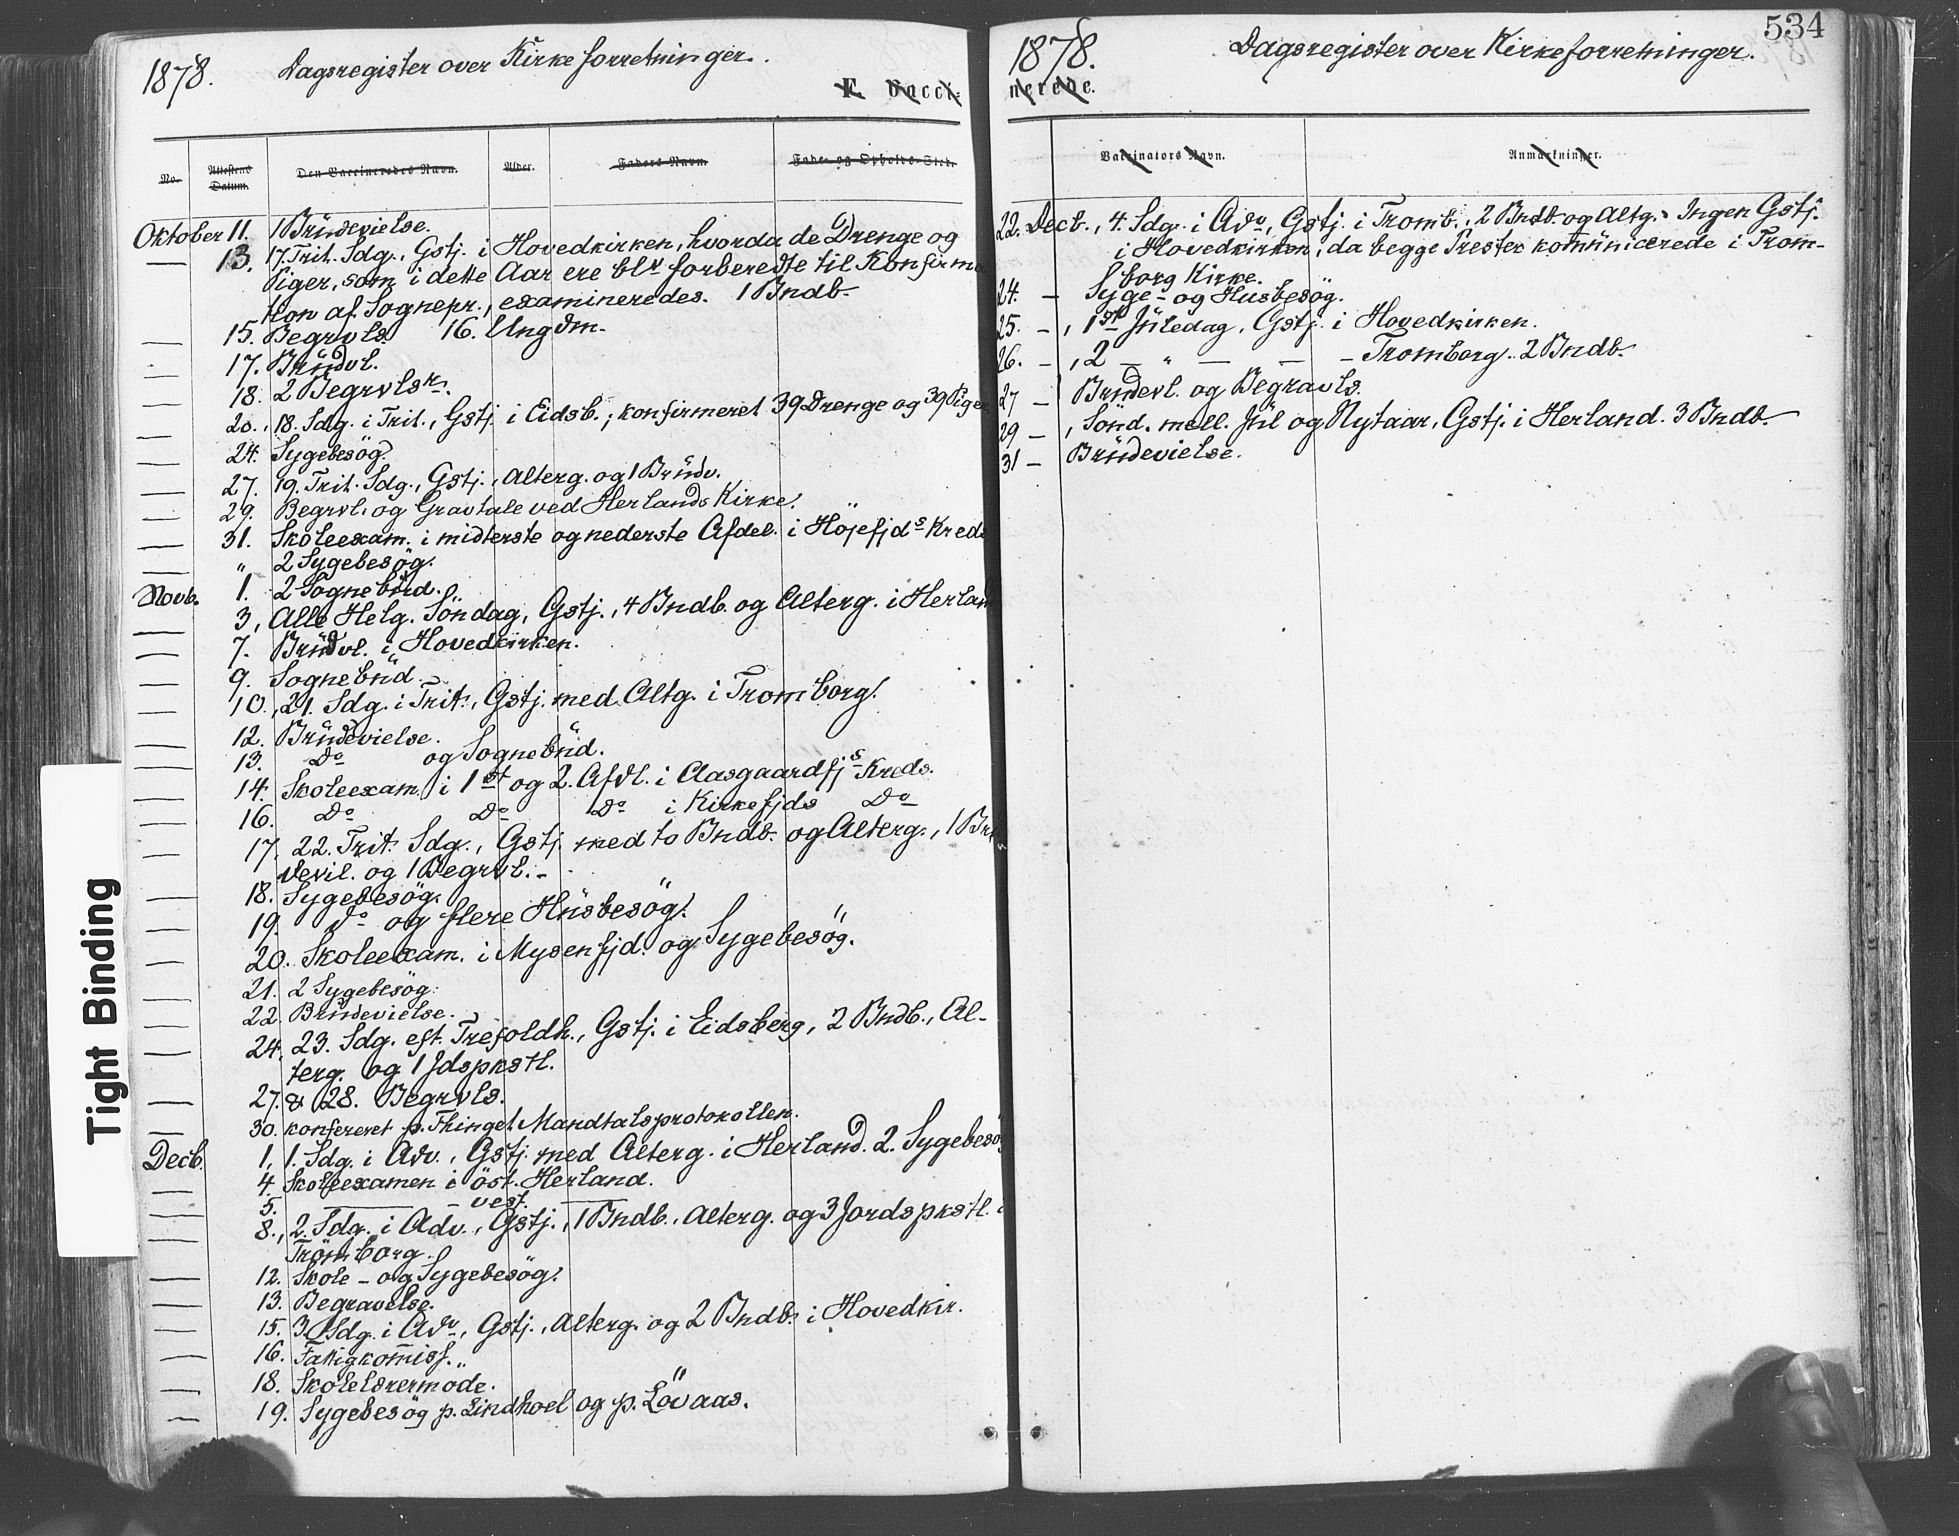 1878. Dagsregister over Kirkeforretninger.
F. Vacci-
No. Attestens Datum. Den Vaccineredes Navn. Alder. Faders Navn. Føde- og Opholds-Sted.
Oktober 11. 1 Brüdevielse.
— 13. 17. Trit. Sdg., Gstj. i Hovedkirken, hvorda de Drenge og
Piger, som i dette Aar ere blv forberedte til Konfirma
tion af Sognepr., examineredes. 1 Bndb.
— 15. Begrvls. 16. Ungdm.
— 17. Brüdvl.
— 18. 2 Begrvlsr.
— 20., 18. Sdg. i Trit., Gstj. i Eidsb.; konfirmeret 39 Drenge og 39 Piger
— 24. Sygebesög.
— 27. 19. Trit. Sdg., Gstj., Alterg. og 1 Brüdv.
— 29. Begrvl. og Gravtale ved Herlands Kirke.
— 31. Skoleexam. i midterste og nederste Afdel. i Höjefjds Kreds
— " 2 Sygebesög.
Novb. 1. 2 Sognebüd.
— 3, Alle Helg. Söndag, Gstj., 4 Bndb. og Alterg. i Herlan
— 7. Brüdvl. i Hovedkirken.
— 9. Sognebüd.
— 10., 21. Sdg. i Trit., Gstj. med Altg. i Tromborg.
— 12. Brüdevielse.
— 13. Do og Sognebüd.
— 14. Skoleexam. i 1st og 2. Afdl. i Aasgaardfjs Kreds.
— 16. Do Do Do i Kirkefjds Do
— 17, 22. Trit. Sdg., Gstj. med to Bndb. og Alterg., 1 Brü
devil. og 1 Begrvl.-
— 18. Sygebesög.
— 19. do og flere Hüsbesög.
— 20. Skoleexam. i Mysenfjd. og Sygebesög.
— 21. 2 Sygebesög.
— 22. Brüdevielse.
— 24, 23. Sdg. eft. Trefoldh., Gstj. i Eidsberg, 2 Bndb., Al-
terg. og 1 Jdspkstl.
— 27. & 28. Begrvls.
— 30. konfereret p. Thinget Mandtalsprotokollen.
Decb. 1, 1. Sdg. i Adv., Gstj. med Alterg. i Herland. 2. Sygebesö
— 4. Skoleexamen i öst. Herland.
— 5. — — vest. —
— 8., 2. Sdg. i Adv., Gstj., 1 Bndb., Alterg. og 3 Jordspkstl. i
Trömborg.
— 12. Skole- og Sygebesög.
— 13. Begravelse.
— 15. 3. Sdg. i Adv, Gstj., Alterg. og 2 Bndb. i Hovedkir.
— 16. Fattigkomiss.
— 18. Skolelærermøde.
— 19. Sygebesög p. Lindhoel og p. Lövaas.
Tight Binding
534
1878. Dagsregister over Kirkeforretninger.
nerede.
Vaccinators Navn. Anmærkninger.
22. Decb., 4. Sdg. i Adv, Gstj. i Tromb., 2 Bndb. og Altg. Ingen Gstj.
i Hovedkirken, da begge Prester kommünicerede i Trom-
borg Kirke.
24. — Syge- og Husbesög.
25. —, 1st Jüledag, Gstj. i Hovedkirken.
26. —, 2 — " — — — Tromborg. 2 Bndb.
27 — Brüdevl. og Begravls.
29 —, Sönd. mell. Jül og Nytaar, Gstj. i Herland. 3 Bndb.
31 — Brüdevielse.